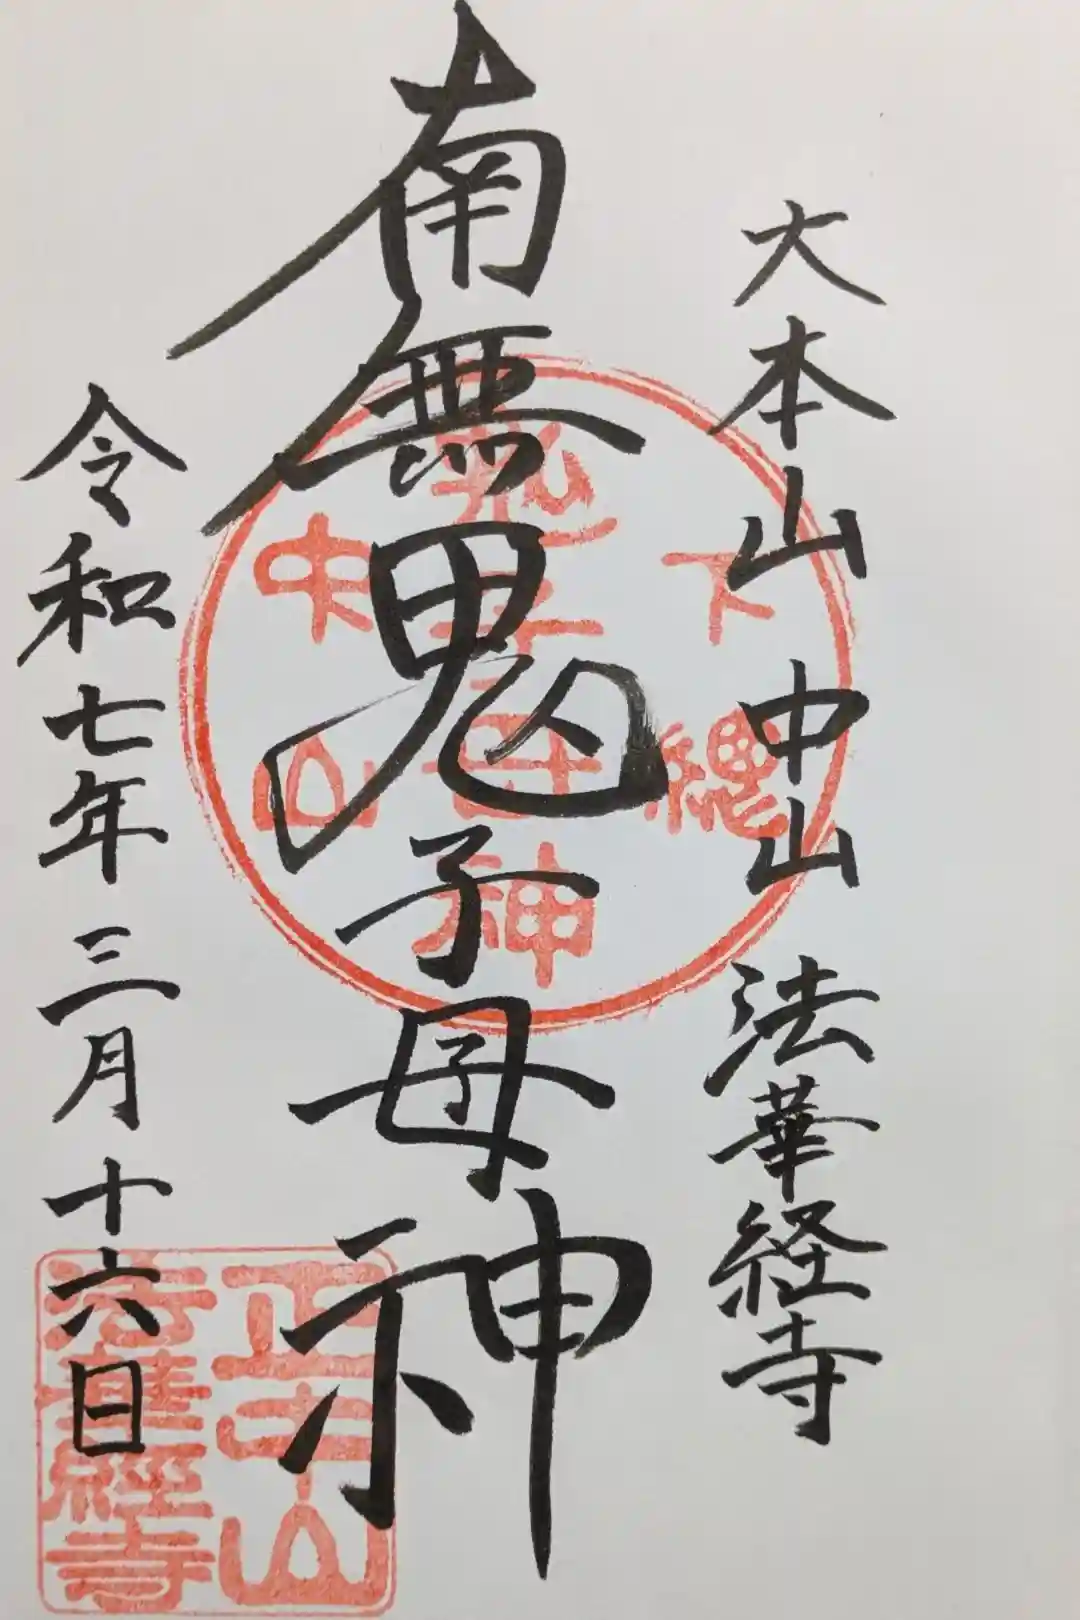 大本山 中山 法華経寺
南無鬼子母神
令和七年三月十六日
下總
鬼子母神
中山
正中山
法華經寺